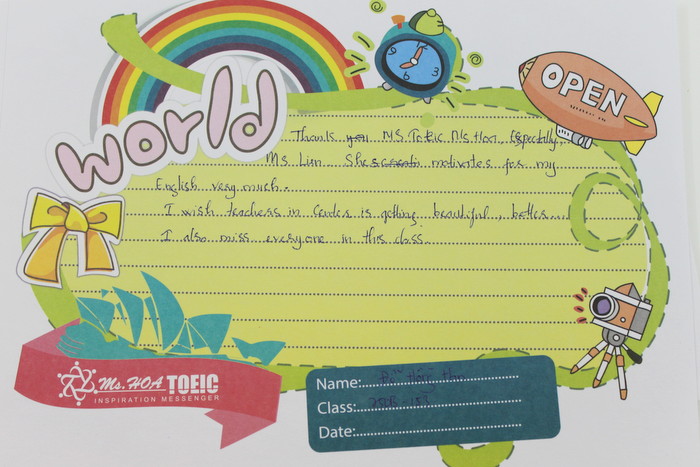 world
OPEN
Thanks you MS Toeic Ms Hoa, Especially,
Ms Lien She motivates for my
English very much.
I wish teachers in center is getting beautiful, better...
I also miss everyone in this class.
Ms.HOA TOEIC
INSPIRATION MESSENGER
Name:
Class:
Date: